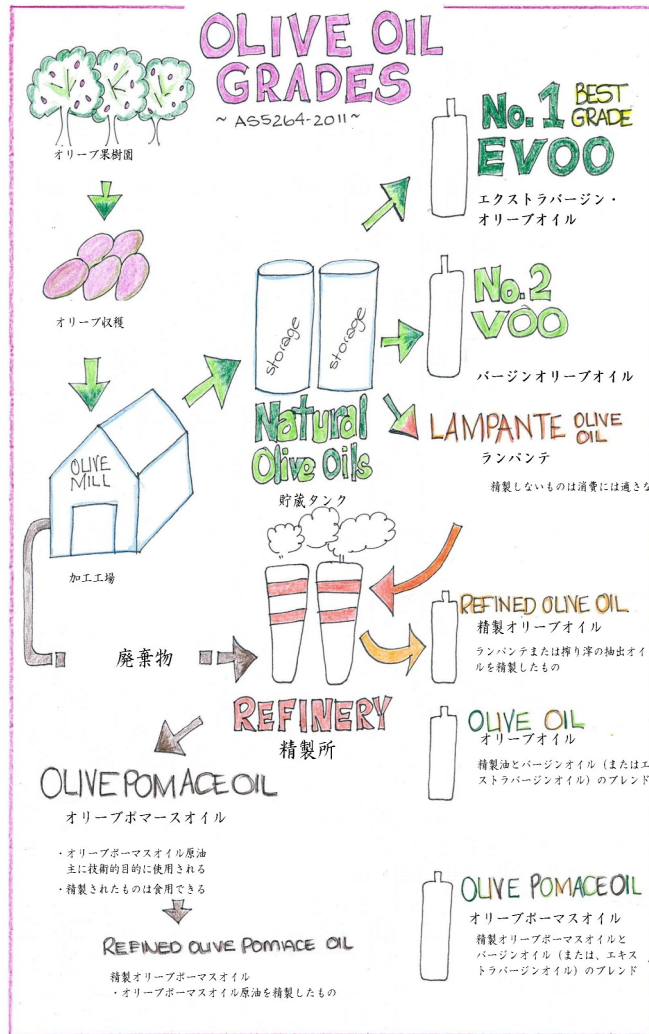 OLIVE OIL
GRADES
~ AS5264-2011 ~
オリーブ果樹園
オリーブ収穫
OLIVE
MILL
加工工場
storage
storage
Natural
Olive Oils
貯蔵タンク
No.1 BEST
GRADE
EVOO
エクストラバージン・
オリーブオイル
No.2
VOO
バージンオリーブオイル
LAMPANTE OLIVE
OIL
ランパンテ
精製しないものは消費には適さな
廃棄物
REFINERY
精製所
REFINED OLIVE OIL
精製オリーブオイル
ランパンテまたは搾り滓の抽出オイ
ルを精製したもの
OLIVE OIL
オリーブオイル
精製油とバージンオイル（またはエ
ストラバージンオイル）のブレンド
OLIVE POMACE OIL
オリーブポマースオイル
・オリーブポーマスオイル原油
主に技術的目的に使用される
・精製されたものは食用できる
REFINED OLIVE POMACE OIL
精製オリーブポーマスオイル
・オリーブポーマスオイル原油を精製したもの
OLIVE POMACE OIL
オリーブポーマスオイル
精製オリーブポーマスオイルと
バージンオイル（または、エキス
トラバージンオイル）のブレンド